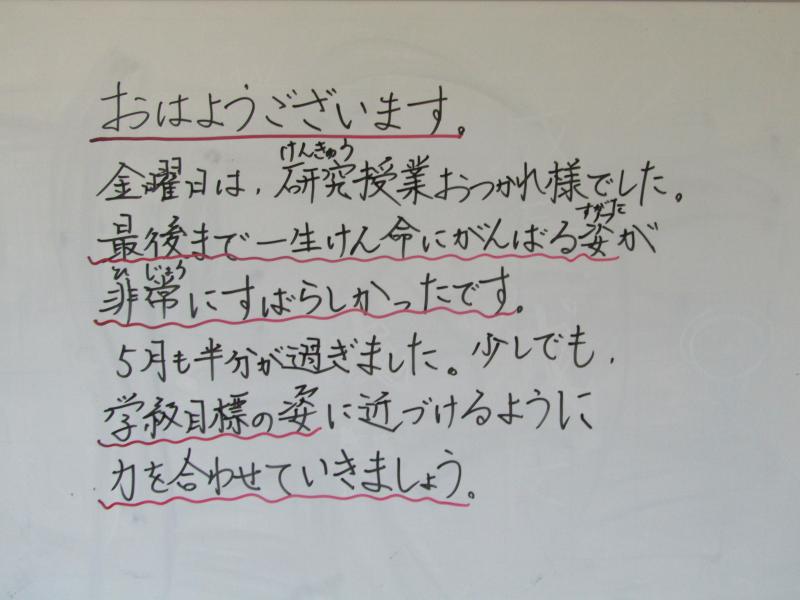 おはようございます。
けんきゅう
金曜日は、研究授業おつかれ様でした。
すがた
最後まで一生けん命にがんばる姿が
ひじょう
非常にすばらしかったです。
5月も半分が過ぎました。少しでも、
学級目標の姿に近づけるように
力を合わせていきましょう。